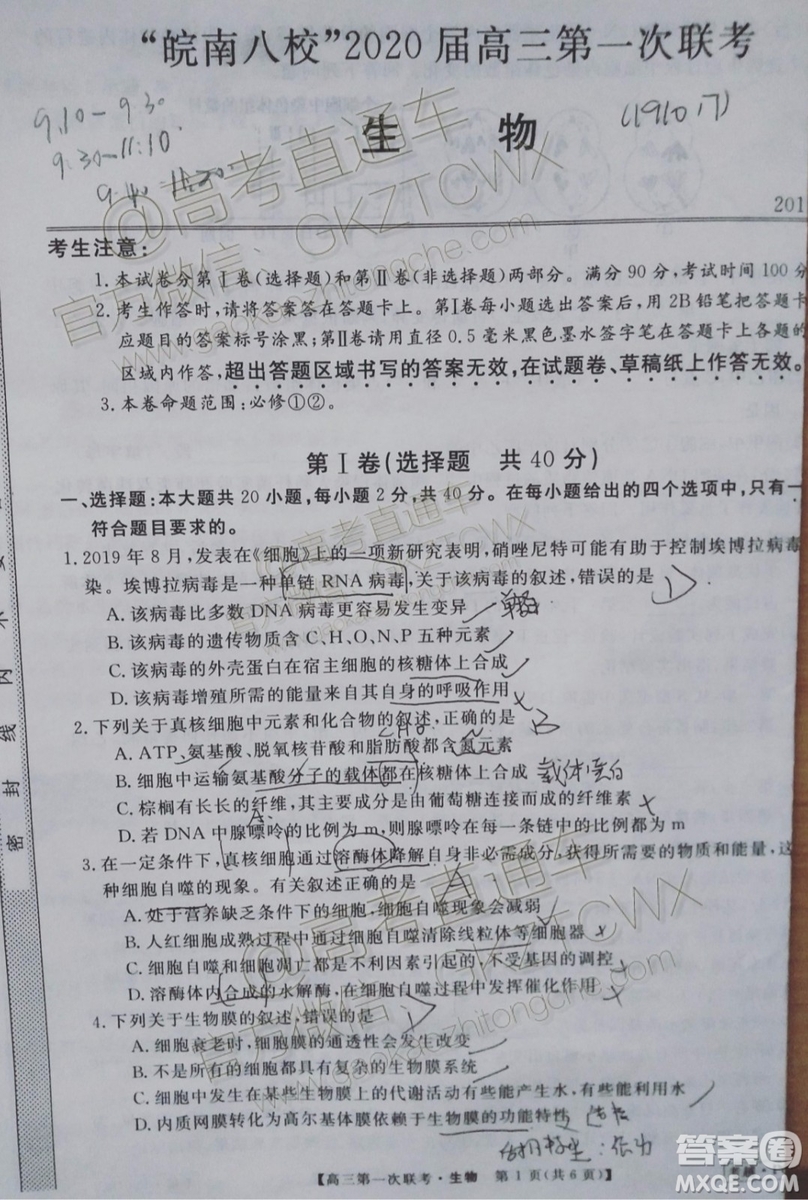 “皖南八校”2020届高三第一次联考
9.10-9.30
9.30-11:10
(191017)
生 物
201
考生注意:
1.本试卷分第Ⅰ卷(选择题)和第Ⅱ卷(非选择题)两部分。满分90分,考试时间100分
2.考生作答时,请将答案答在答题卡上。第Ⅰ卷每小题选出答案后,用2B铅笔把答题卡
应题目的答案标号涂黑;第Ⅱ卷请用直径0.5毫米黑色墨水签字笔在答题卡上各题的
区域内作答,超出答题区域书写的答案无效,在试题卷、草稿纸上作答无效。
3.本卷命题范围:必修①②。
第Ⅰ卷(选择题 共40分)
一、选择题:本大题共20小题,每小题2分,共40分。在每小题给出的四个选项中,只有一
符合题目要求的。
1.2019年8月,发表在《细胞》上的一项新研究表明,硝唑尼特可能有助于控制埃博拉病毒
染。埃博拉病毒是一种单链RNA病毒,关于该病毒的叙述,错误的是 D
A.该病毒比多数DNA病毒更容易发生变异
B.该病毒的遗传物质含C、H、O、N、P五种元素
C.该病毒的外壳蛋白在宿主细胞的核糖体上合成
D.该病毒增殖所需的能量来自其自身的呼吸作用
2.下列关于真核细胞中元素和化合物的叙述,正确的是 B
A.ATP、氨基酸、脱氧核苷酸和脂肪酸都含氮元素
B.细胞中运输氨基酸分子的载体都在核糖体上合成 载体蛋白
C.棕榈有长长的纤维,其主要成分是由葡萄糖连接而成的纤维素
D.若DNA中腺嘌呤的比例为m,则腺嘌呤在每一条链中的比例也为m
3.在一定条件下,真核细胞通过溶酶体降解自身非必需成分,获得所需的物质和能量,这
种细胞自噬的现象。有关叙述正确的是 A
A.处于营养缺乏条件下的细胞,细胞自噬现象会减弱
B.人红细胞成熟过程中通过细胞自噬清除线粒体等细胞器
C.细胞自噬和细胞凋亡都是不利因素引起的,不受基因的调控
D.溶酶体内合成的水解酶,在细胞自噬过程中发挥催化作用
4.下列关于生物膜的叙述,错误的是 D
A.细胞衰老时,细胞膜的通透性会发生改变
B.不是所有的细胞都具有复杂的生物膜系统
C.细胞中发生在某些生物膜上的代谢活动有些能产生水,有些能利用水
D.内质网膜转化为高尔基体膜依赖于生物膜的功能特性
【高三第一次联考·生物 第1页(共6页)】
密 封 线 内 不
@高考直通车
官方微信:GKZTCWX
www.gaokaozhitongche.com
@高考直通车
GKZTCWX
@高考直通车
官方微信:GKZTCWX
www.gaokaozhitongche.com
答案圈
MXQE.COM